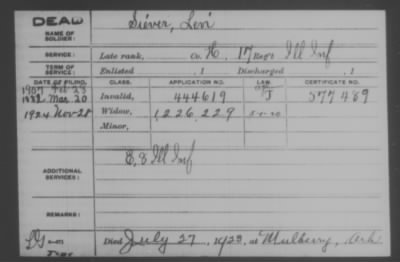 DEAD
NAME OF SOLDIER:
Siever, Levi
SERVICE:
Late rank, Co. K, 17 Reg't Ill Inf
TERM OF SERVICE:
Enlisted , 1 Discharged , 1
DATE OF FILING. CLASS. APPLICATION NO. LAW. CERTIFICATE NO.
1907 Feb 23
1882 Mar 20 Invalid, 444619 577489
1924 Nov 28 Widow, 1,226,229
Minor,
ADDITIONAL SERVICES:
E, 8 Ill Inf
REMARKS:
Died July 27, 1923, at Mulberry, Ark